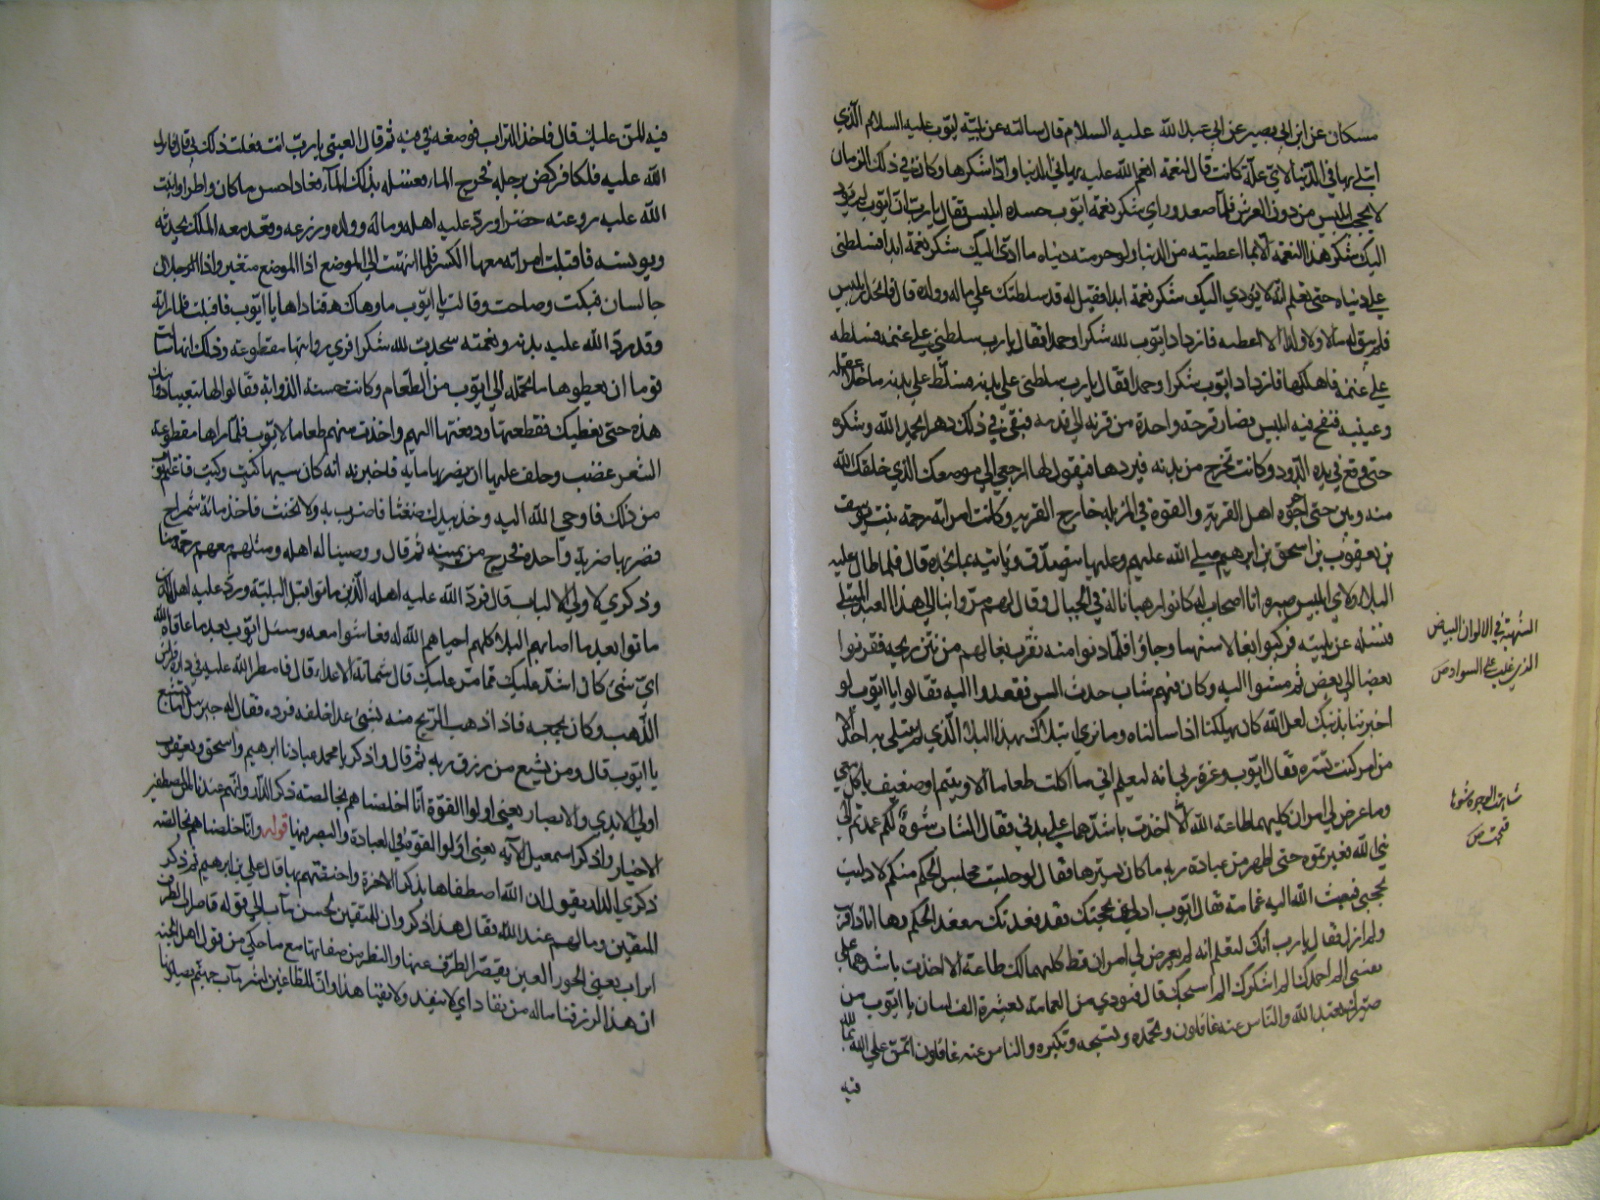 مسكان عن ابي بصير عن ابي عبد الله عليه السلام قال سالته عن بلية ايوب عليه السلام الذي
ابتلى بها في الدنيا لاي علة كانت قال لنعمة انعم الله عليه بها في الدنيا وادّا شكرها وكان في ذلك الزمان
لا يحجب ابليس من دون العرش فلما صعد وراي شكر نعمة ايوب حسده ابليس فقال يا رب ان ايوب لم يؤد
اليك شكر هذه النعمة الا بما اعطيته من الدنيا ولو حرمته دنياه ما ادّى اليك شكر نعمة ابدا فسلطني
على دنياه حتى تعلم انه لا يؤدي اليك شكر نعمة ابدا فقيل له قد سلطتك على ماله وولده قال فانحدر ابليس
فلم يبق له مالا ولا ولدا الا اعطبه فازداد ايوب لله شكرا وحمدا فقال يا رب سلطني على غنمه فسلطه
على غنمه فاهلكها فازداد ايوب شكرا وحمدا فقال يا رب سلطني على بدنه فسلّطه على بدنه ما خلا عقله
وعينيه فنفخ فيه ابليس فصار قرحة واحدة من قرنه الى قدمه فبقي في ذلك دهرا يحمد الله وشكره
حتى وقع في بدنه الدود وكانت تخرج من بدنه فيردها فيقول لها ارجعي الى موضعك الذي خلقك الله
منه ونتن حتى اخرجوه اهل القرية من القرية والقوه في المزبلة خارج القرية وكانت امراته رحمة بنت يوسف
بن يعقوب بن اسحق بن ابرهيم صلى الله عليهم وعليها يتصدق وياتيه بما تجده قال فلما طال عليه
البلاء وراى ابليس صبره اتا اصحاب له كانوا رهبانا له في الجبال وقال لهم مرّوا بنا الى هذا العبد المبتلى
فنسئله عن بليته فركبوا بغالا شهبا وجاؤا فلما دنوا منه نفرت بغالهم من نتن ريحه فقرنوا
بعضا الى بعض ثم مشوا اليه وكان فيهم شاب حدث السن فقعدوا اليه فقالوا يا ايوب لو
اخبرتنا بذنبك لعل الله كان يهلكنا اذا سالناه وما نرى ابتلاك بهذا البلاء الذي لم يبتلى به احد الا
من امر كنت تستره فقال ايوب وعزة ربي انه ليعلم اني ما اكلت طعاما الا ويتيم او ضعيف ياكل معي
وما عرض لي امران كليهما طاعة الله الا اخذت باشدّهما على بدني فقال الشاب سوءة لكم عمدتم الى
نبي الله فعيرتموه حتى اظهر من عبادة ربه ما كان يسترها فقال لو جلست مجلس الحكم منكم لادليت
بحجتي فبعث الله اليه غمامة فقال ايوب ادلني بحجتك فقد اقعدتك مقعد الحكم وها انا ذا قريب
ولم ازل فقال يا رب انك لتعلم انه لم يعرض لي امران قط كليهما لك طاعة الا اخذت باشدهما على
نفسي الم احمدك الم اشكرك الم اسبحك قال فنودي من الغمامة بعشرة الف لسان يا ايوب من
صيرك تعبد الله والناس عنه غافلون وتحمده وتسبحه وتكبره والناس عنه غافلون اتمنّ على الله بما لله
فيه
الشهبة في الالوان البياض
الذي غلب على السواد ص
شاهت الوجوه شوها
قبحت ص
فيه المن عليك قال فاخذ التراب فوضعه في فيه ثم قال العتبى يا رب انت فعلت ذلك بي قال فانزل
الله عليه ملكا فركض برجله فخرج الماء فغسله بذلك الماء فعاد احسن ما كان واطرا وانبت
الله عليه روضة خضرا وردّ عليه اهله وماله وولده وزرعه وقعد معه الملك يحدثه
ويونسه فاقبلت امراته معها الكسر فلما انتهت الى الموضع اذا الموضع متغير واذا رجلان
جالسان فبكت وصاحت وقالت يا ايوب ما دهاك فناداها يا ايوب فاقبلت فلما راته
وقد ردّ الله عليه بدنه ونعمته سجدت لله شكرا فرى ذوابتها مقطوعة وذلك انها سالت
قوما ان يعطوها ما تحمله الى ايوب من الطعام وكانت حسنة الذوابة فقالوا لها تبيعينا ذوابتك
هذه حتى نعطيك فقطعتها ودفعتها اليهم واخذت منهم طعاما لايوب فلما راها مقطوعة
الشعر غضب وحلف عليها ان يضربها ماية فاخبرته انه كان سببها كيت وكيت فاغتم ايوب
من ذلك فاوحى الله اليه وخذ بيدك ضغثا فاضرب به ولا تحنث فاخذ مائة شمراخ
فضربها ضربة واحدة فخرج من يمينه ثم قال ووهبنا له اهله ومثلهم معهم رحمة منا
وذكرى لاولي الالباب قال فردّ الله عليه اهله الذين ماتوا قبل البلية وردّ عليه اهله الذين
ماتوا بعد ما اصابهم البلاء كلهم احياهم الله له فعاشوا معه وسئل ايوب بعد ما عافاه الله
اي شيء كان اشدّ عليك مما مرّ عليك قال شماتة الاعداء قال فامطر الله عليه في داره فراش
الذهب وكان يجمعه فاذا ذهب الريح منه بشيء عدا خلفه فرده فقال له جبرئيل اما تشبع
يا ايوب قال ومن يشبع من رزق ربه ثم قال واذكر يا محمد عبادنا ابرهيم واسحق ويعقوب
اولي الايدي والابصار يعني اولوا القوّة انّا اخلصناهم بخالصته ذكر الدار وانهم عندنا لمن المصطفين
الاخيار واذكر اسمعيل الآية يعني اولوا القوّة في العبادة والبصر فيها قوله وانا اخلصناهم بخالصة
ذكرى الدار يقول ان الله اصطفاها بذكر الاخرة واختصّهم بها قال علي بن ابرهيم ثم ذكر
المتقين وما لهم عند الله فقال هذا ذكر وان للمتقين لحسن مآب الى قوله قاصرات الطرف
اتراب يعني الحور العين يقصر الطرف عنها والنظر من صفائها مع ما حكى من قول اهل الجنة
ان هذا لرزقنا ماله من نفاد اي لا ينفد ولا يفنا هذا وان للطاغين لشر مآب جهنم يصلونها